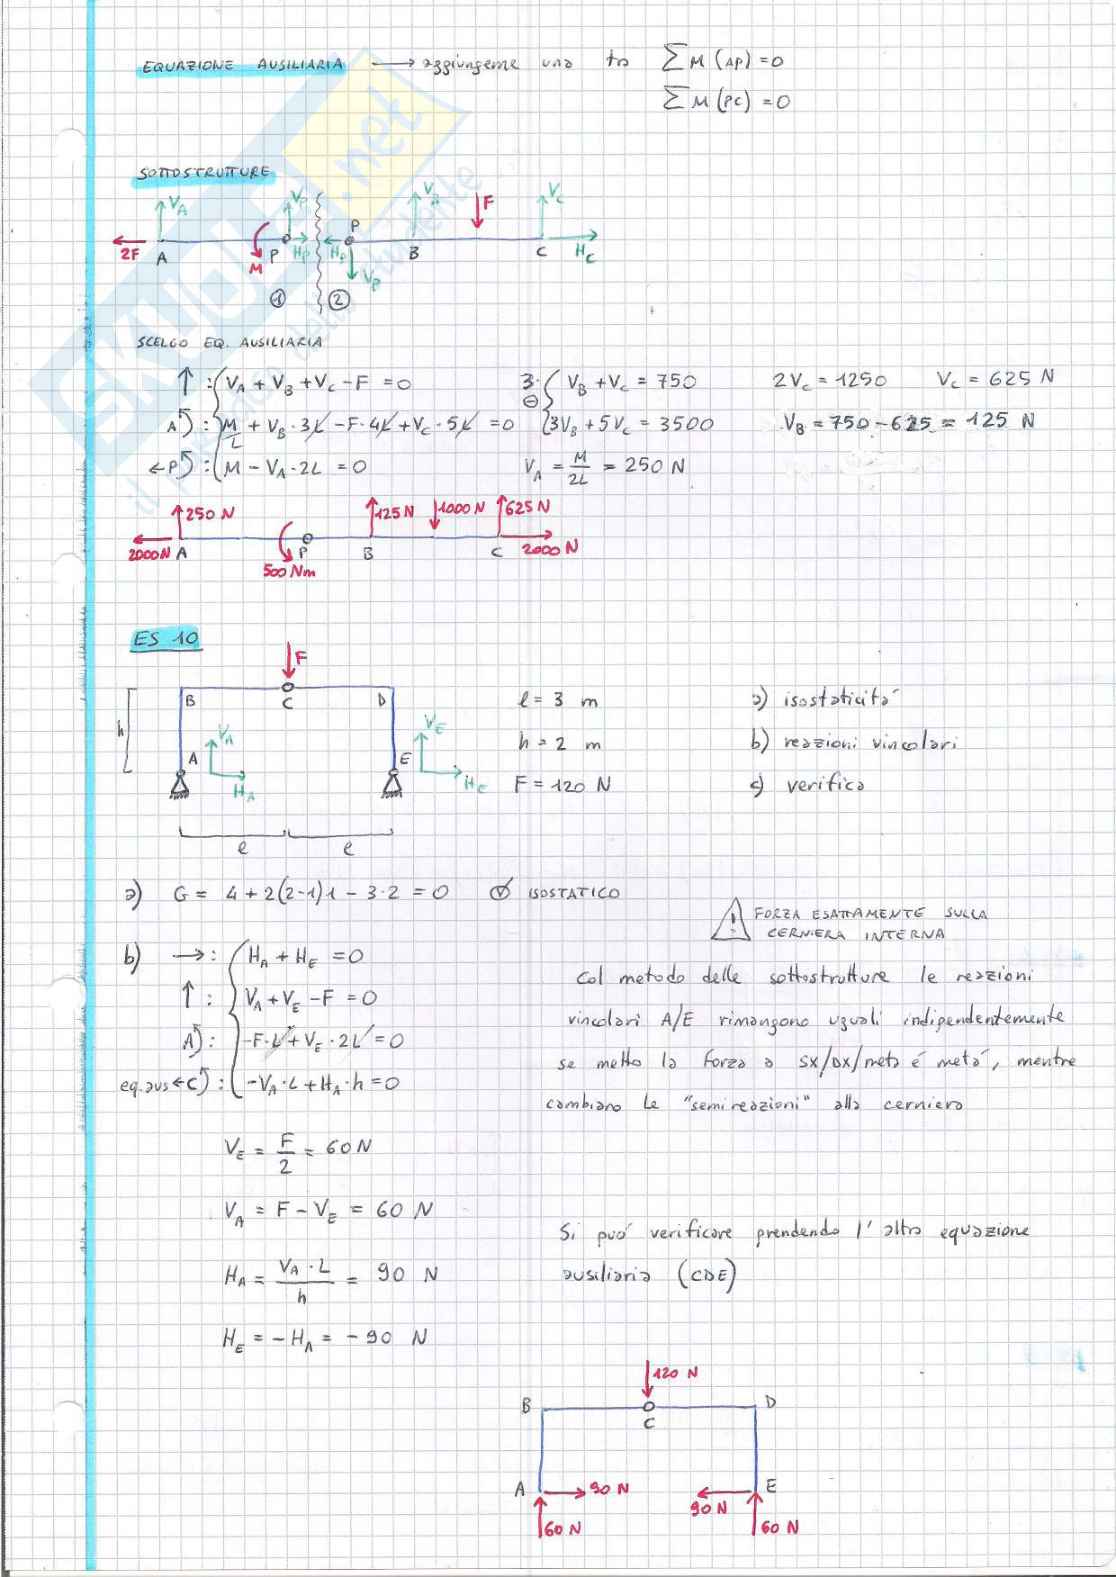 EQUAZIONE AUSILIARIA → aggiungerne una tra ∑M (AP) = 0
∑M (PC) = 0
SOTTOSTRUTTURE
V_A V_P V_B F V_C
2F A M P H_P H_P P V_P B C H_C
① ②
SCELGO EQ. AUSILIARIA
↑ : V_A + V_B + V_C - F = 0 3· V_B + V_C = 750 2V_C = 1250 V_C = 625 N
A↺ : M/L + V_B · 3L - F · 4L + V_C · 5L = 0 3V_B + 5V_C = 3500 V_B = 750 - 625 = 125 N
←P↺ : M - V_A · 2L = 0 V_A = M/2L = 250 N
250 N 125 N 1000 N 625 N
2000 N A P B C 2000 N
500 Nm
ES 10
F
B C D l = 3 m a) isostaticità
h V_A V_E h = 2 m b) reazioni vincolari
A E
H_A H_E F = 120 N c) verifica
l l
a) G = 4 + 2(2-1)1 - 3·2 = 0 ISOSTATICO
! FORZA ESATTAMENTE SULLA
CERNIERA INTERNA
b) → : H_A + H_E = 0
↑ : V_A + V_E - F = 0
A↺ : -F·L + V_E · 2L = 0
eq. aus ←C↺ : -V_A · L + H_A · h = 0
Col metodo delle sottostrutture le reazioni
vincolari A/E rimangono uguali indipendentemente
se metto la forza a sx/dx/metà e metà, mentre
cambiano le "semireazioni" alla cerniera
V_E = F/2 = 60 N
V_A = F - V_E = 60 N
H_A = V_A · L / h = 90 N
H_E = -H_A = - 90 N
Si può verificare prendendo l'altra equazione
ausiliaria (CDE)
120 N
B C D
A 90 N 90 N E
60 N 60 N
SKUOLA.net
il paradiso dello studente